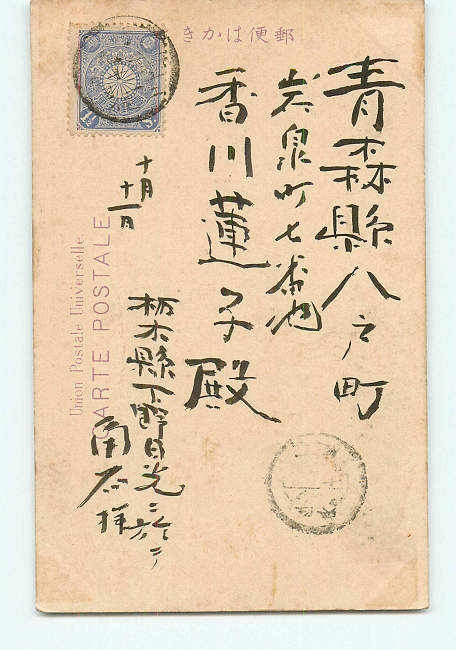 郵便はかき
青森縣八戸町
岩泉町七番地
香川蓮子殿
十月
十一日
栃木縣下野日光ニ於テ
Union Postale Universelle.
CARTE POSTALE
1½ Sn